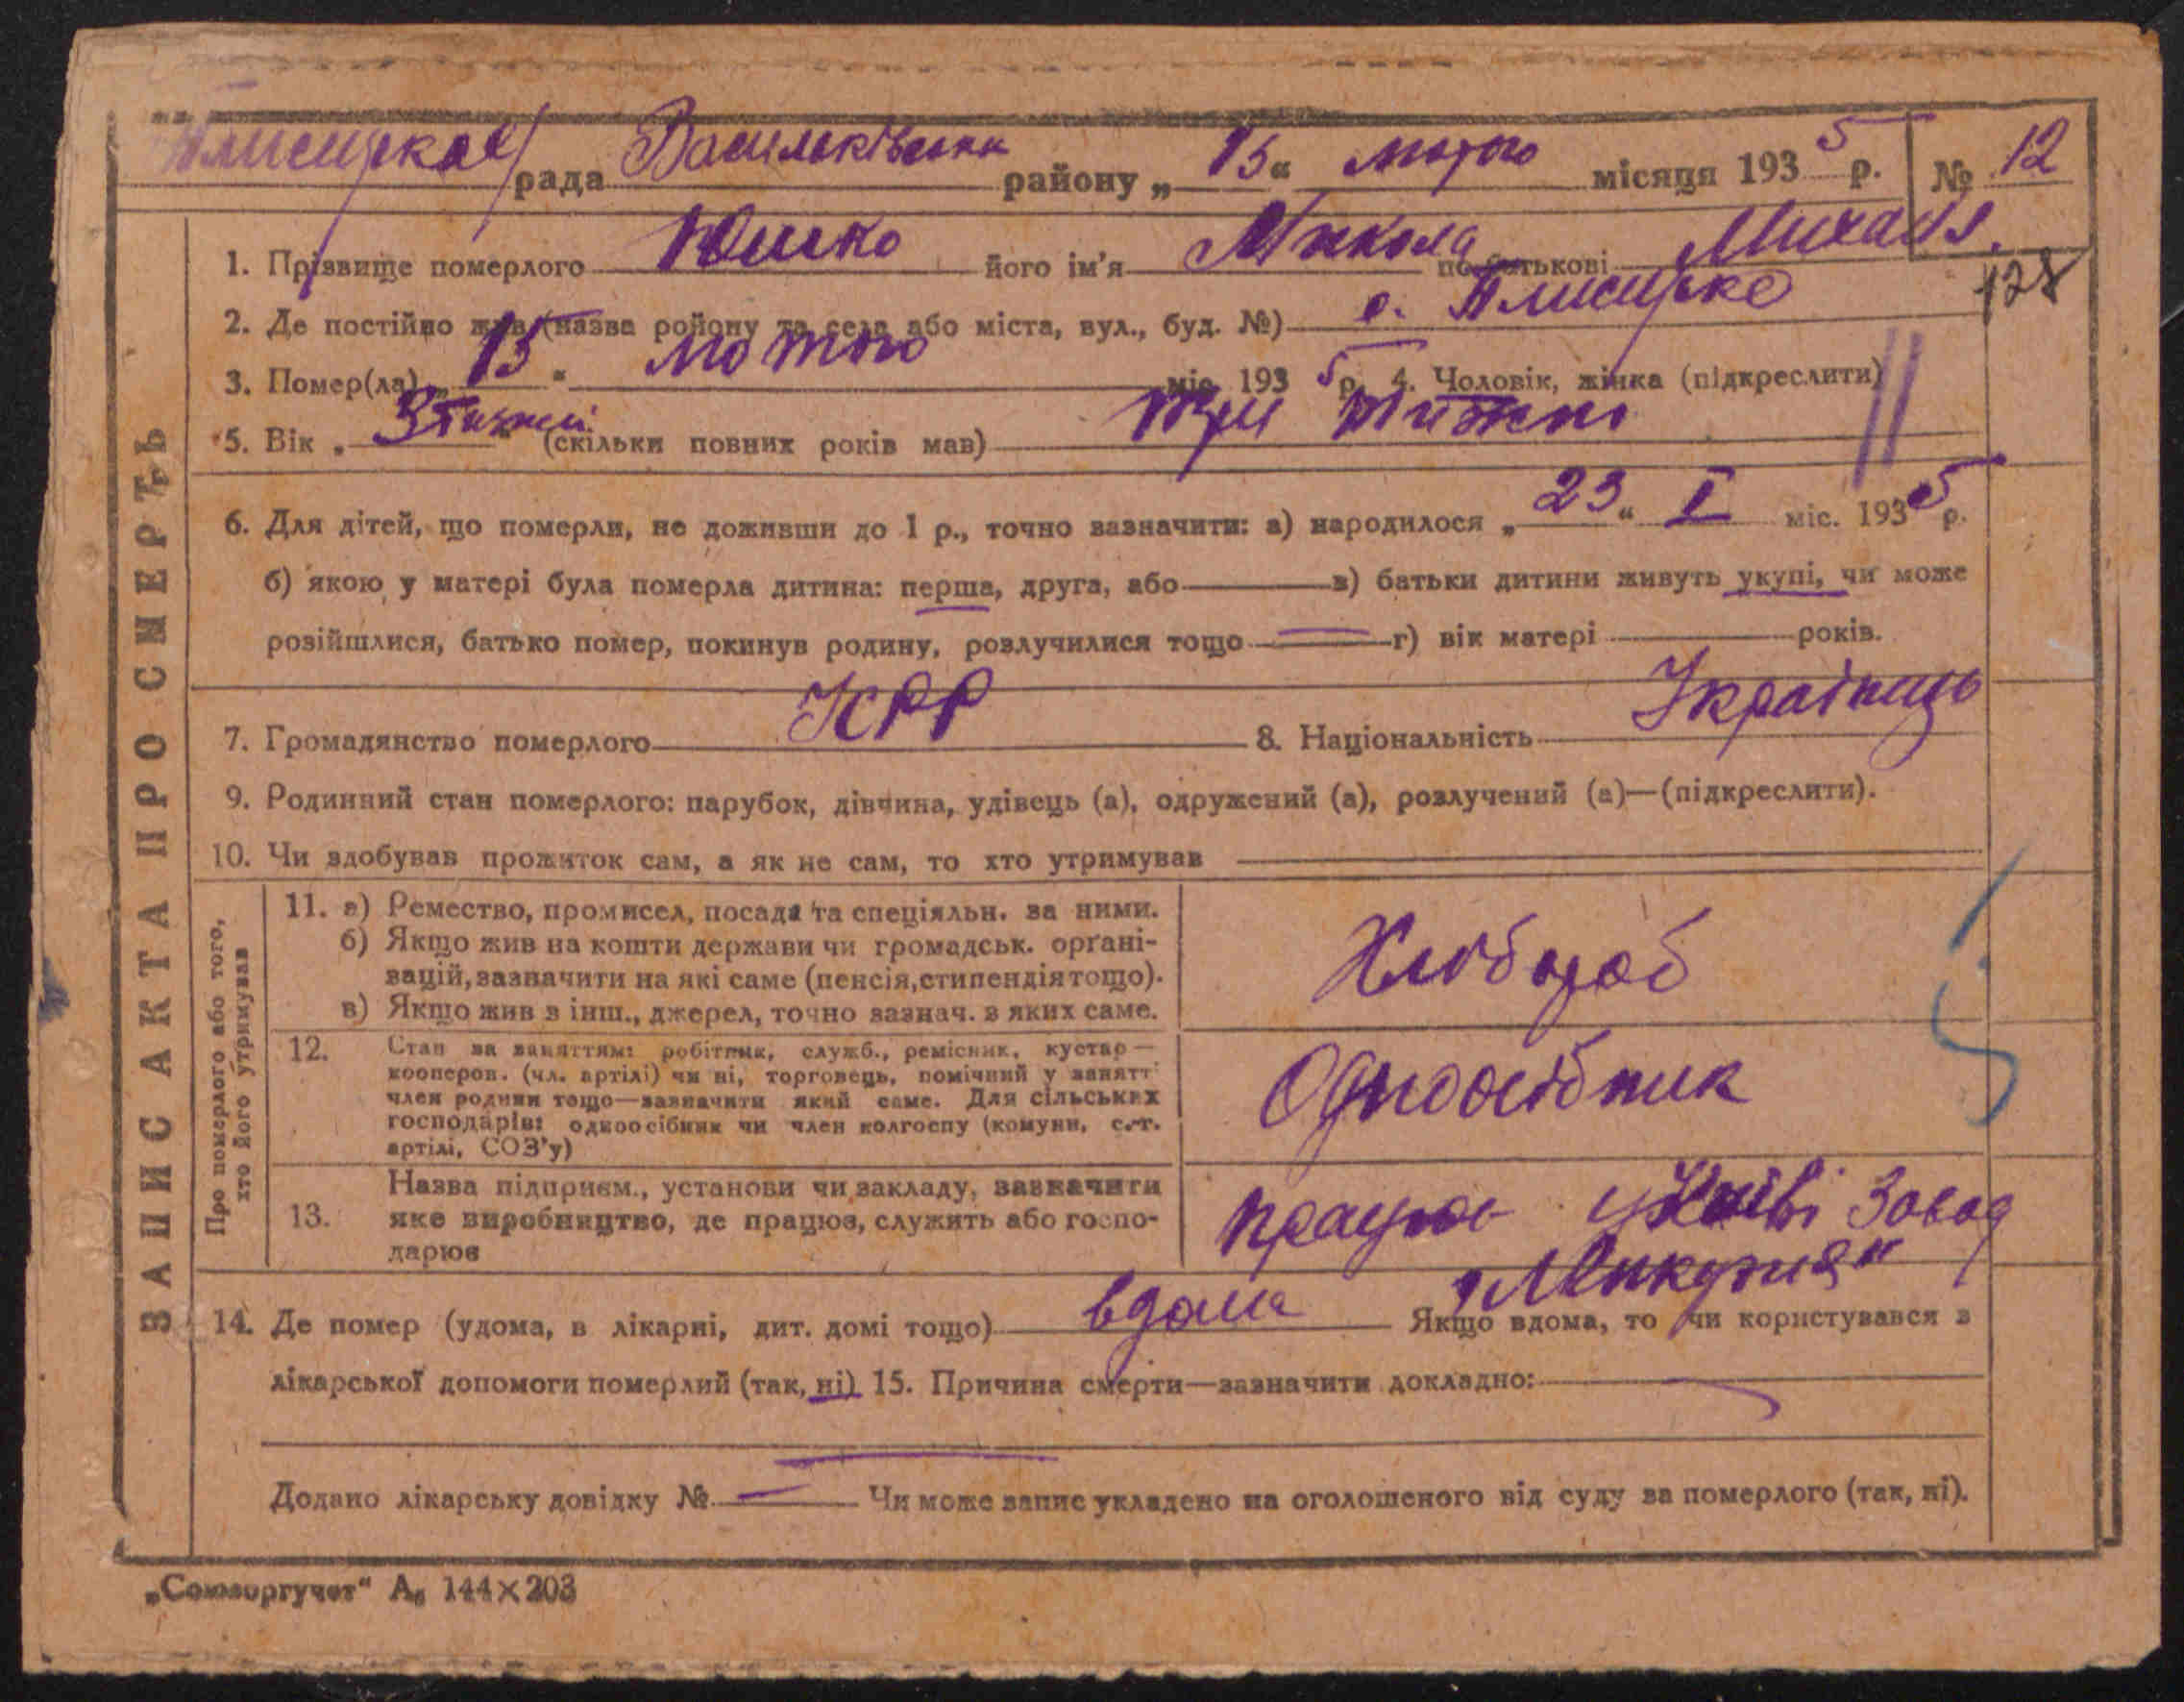 Плисецкая рада Васильківського району „15“ лютого місяця 1935 р. № 12
1. Прізвище померлого Юшко його ім'я Микола по батькові Михайл.
128
2. Де постійно жив (назва району та села або міста, вул., буд. №) с. Плисецке
3. Помер(ла) „15“ лютого міс. 1935 р. 4. Чоловік, жінка (підкреслити)
5. Вік „3 тижні“ (скільки повних років мав) три тижні
6. Для дітей, що померли, не доживши до 1 р., точно зазначити: а) народилося „23“ I міс. 1935 р.
б) якою у матері була померла дитина: перша, друга, або — в) батьки дитини живуть укупі, чи може
розійшлися, батько помер, покинув родину, розлучилися тощо — г) вік матері — років.
7. Громадянство померлого УСРР 8. Національність Українець
9. Родинний стан померлого: парубок, дівчина, удівець (а), одружений (а), розлучений (а)—(підкреслити).
10. Чи здобував прожиток сам, а як не сам, то хто утримував
ЗАПИС АКТА ПРО СМЕРТЬ
Про померлого або того,
хто його утримував
11. а) Ремество, промисел, посада та спеціяльн. за ними.
б) Якщо жив на кошти держави чи громадськ. орґані-
зацій, зазначити на які саме (пенсія, стипендія тощо).
в) Якщо жив з інш., джерел, точно зазнач. з яких саме.
Хлібороб
12. Стан за заняттям: робітник, служб., ремісник, кустар—
кооперов. (чл. артілі) чи ні, торговець, помічний у занятт
член родини тощо—зазначити який саме. Для сільських
господарів: одноосібник чи член колгоспу (комуни, с.-г.
артілі, СОЗ'у)
Одноосібник
13. Назва підприєм., установи чи закладу, зазначити
яке виробництво, де працює, служить або госпо-
дарює
працює у Київі Завод
14. Де помер (удома, в лікарні, дит. домі тощо) вдома Якщо вдома, то чи користувався з
лікарської допомоги померлий (так, ні) 15. Причина смерти—зазначити докладно:
Додано лікарську довідку № — Чи може запис укладено на оголошеного від суду за померлого (так, ні).
„Союзоргучет“ А₅ 144×203